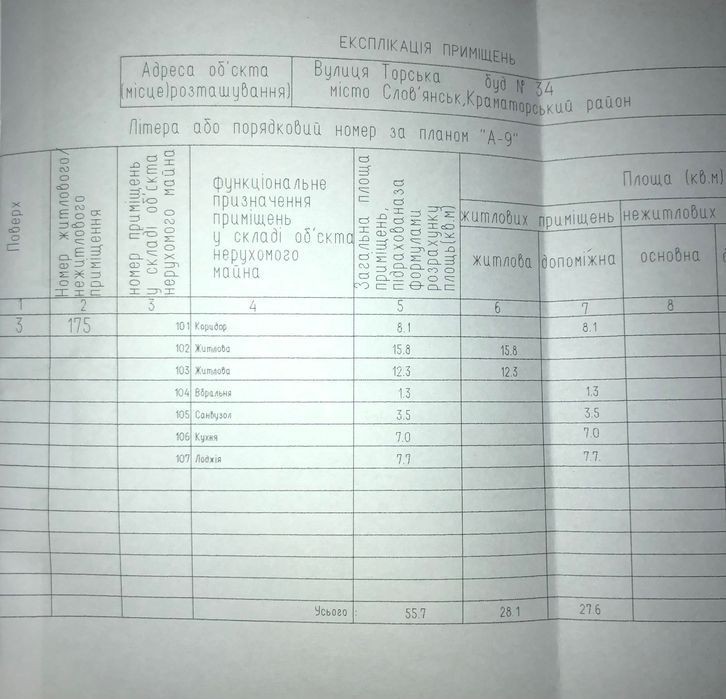 ЕКСПЛІКАЦІЯ ПРИМІЩЕНЬ
Адреса об'єкта
(місце)розташування)
Вулиця Торська буд № 34
місто Слов'янськ,Краматорський район
Літера або порядковий номер за планом "А-9"
Поверх
Номер житлового/
нежитлового
приміщення
номер приміщень
у складі об'єкта
нерухомого майна
функціональне
призначення
приміщень
у складі об'єкта
нерухомого
майна
Загальна площа
приміщень,
підрахованаза
формулами
розрахунку
площы(кв.м)
Площа (кв.м)
житлових приміщень
нежитлових
житлова
допоміжна
основна
1 2 3 4 5 6 7 8
3 175 101 Коридор 8.1 8.1
102 Житлова 15.8 15.8
103 Житлова 12.3 12.3
104 Вбральня 1.3 1.3
105 Санвузол 3.5 3.5
106 Кухня 7.0 7.0
107 Лоджія 7.7 7.7.
Усього : 55.7 28.1 27.6